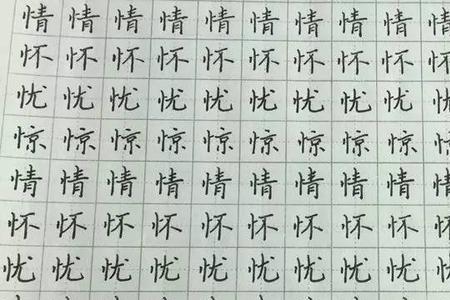 情情情情情情情情情情
怀怀怀怀怀怀怀怀怀怀
忧忧忧忧忧忧忧忧忧忧
惊惊惊惊惊惊惊惊惊惊
情情情情情情情情情情
怀怀怀怀怀怀怀怀怀怀
忧忧忧忧忧忧忧忧忧忧